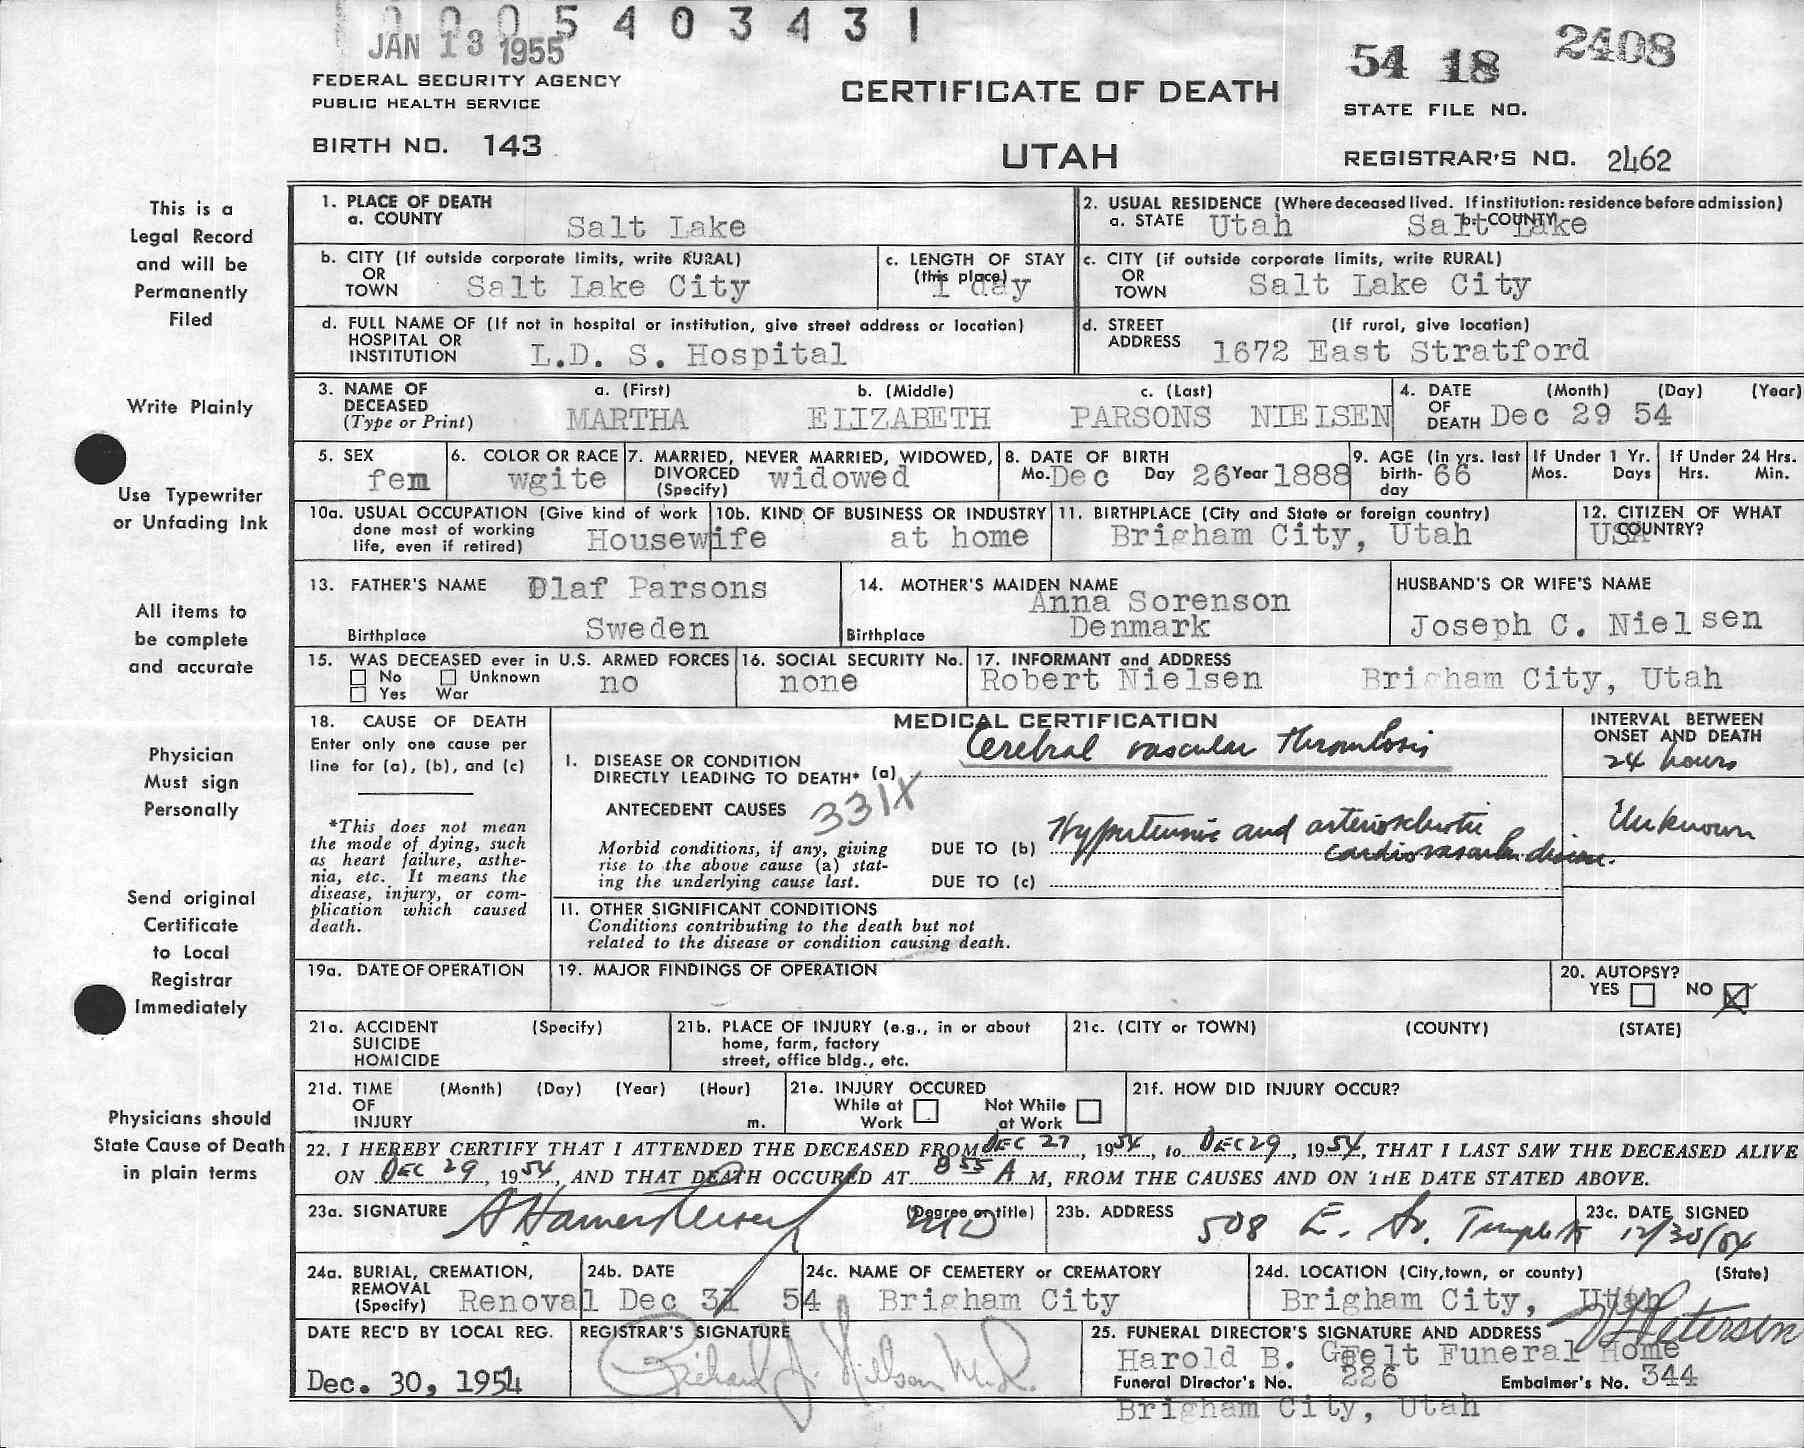 0005403431
JAN 13 1955
54 18 2408
FEDERAL SECURITY AGENCY
PUBLIC HEALTH SERVICE
CERTIFICATE OF DEATH
STATE FILE NO.
BIRTH NO. 143
UTAH
REGISTRAR'S NO. 2462
This is a
Legal Record
and will be
Permanently
Filed
Write Plainly
Use Typewriter
or Unfading Ink
All items to
be complete
and accurate
Physician
Must sign
Personally
Send original
Certificate
to Local
Registrar
Immediately
Physicians should
State Cause of Death
in plain terms
1. PLACE OF DEATH
a. COUNTY Salt Lake
2. USUAL RESIDENCE (Where deceased lived. If institution: residence before admission)
a. STATE Utah b. COUNTY Salt Lake
b. CITY (If outside corporate limits, write RURAL)
OR
TOWN Salt Lake City
c. LENGTH OF STAY
(this place) 1 day
c. CITY (if outside corporate limits, write RURAL)
OR
TOWN Salt Lake City
d. FULL NAME OF (If not in hospital or institution, give street address or location)
HOSPITAL OR
INSTITUTION L.D. S. Hospital
d. STREET (If rural, give location)
ADDRESS 1672 East Stratford
3. NAME OF a. (First) b. (Middle) c. (Last)
DECEASED
(Type or Print) MARTHA ELIZABETH PARSONS NIELSEN
4. DATE (Month) (Day) (Year)
OF
DEATH Dec 29 54
5. SEX
fem
6. COLOR OR RACE
wgite
7. MARRIED, NEVER MARRIED, WIDOWED,
DIVORCED widowed
(Specify)
8. DATE OF BIRTH
Mo. Dec Day 26 Year 1888
9. AGE (in yrs. last
birth- 66
day
If Under 1 Yr.
Mos. Days
If Under 24 Hrs.
Hrs. Min.
10a. USUAL OCCUPATION (Give kind of work
done most of working
life, even if retired) Housewife
10b. KIND OF BUSINESS OR INDUSTRY
at home
11. BIRTHPLACE (City and State or foreign country)
Brigham City, Utah
12. CITIZEN OF WHAT
COUNTRY? USA
13. FATHER'S NAME Olaf Parsons
Birthplace Sweden
14. MOTHER'S MAIDEN NAME
Anna Sorenson
Birthplace Denmark
HUSBAND'S OR WIFE'S NAME
Joseph C. Nielsen
15. WAS DECEASED ever in U.S. ARMED FORCES
No Unknown no
Yes War
16. SOCIAL SECURITY No.
none
17. INFORMANT and ADDRESS
Robert Nielsen Brigham City, Utah
18. CAUSE OF DEATH
Enter only one cause per
line for (a), (b), and (c)
*This does not mean
the mode of dying, such
as heart failure, asthe-
nia, etc. It means the
disease, injury, or com-
plication which caused
death.
MEDICAL CERTIFICATION
I. DISEASE OR CONDITION
DIRECTLY LEADING TO DEATH* (a) Cerebral vascular thrombosis
ANTECEDENT CAUSES 331X
Morbid conditions, if any, giving
rise to the above cause (a) stat-
ing the underlying cause last.
DUE TO (b) Hypertensive and arteriosclerotic
cardiovascular disease.
DUE TO (c)
INTERVAL BETWEEN
ONSET AND DEATH
24 hours
Unknown
II. OTHER SIGNIFICANT CONDITIONS
Conditions contributing to the death but not
related to the disease or condition causing death.
19a. DATE OF OPERATION
19. MAJOR FINDINGS OF OPERATION
20. AUTOPSY?
YES NO X
21a. ACCIDENT (Specify)
SUICIDE
HOMICIDE
21b. PLACE OF INJURY (e.g., in or about
home, farm, factory
street, office bldg., etc.
21c. (CITY or TOWN) (COUNTY) (STATE)
21d. TIME (Month) (Day) (Year) (Hour)
OF
INJURY m.
21e. INJURY OCCURED
While at Not While
Work at Work
21f. HOW DID INJURY OCCUR?
22. I HEREBY CERTIFY THAT I ATTENDED THE DECEASED FROM DEC 27, 1954, to DEC 29, 1954, THAT I LAST SAW THE DECEASED ALIVE
ON DEC 29, 1954, AND THAT DEATH OCCURED AT 8 55 A M, FROM THE CAUSES AND ON THE DATE STATED ABOVE.
23a. SIGNATURE (Degree or title) MD
23b. ADDRESS 508 E. So. Temple St
23c. DATE SIGNED
12/30/54
24a. BURIAL, CREMATION,
REMOVAL
(Specify) Renoval
24b. DATE
Dec 31 54
24c. NAME OF CEMETERY or CREMATORY
Brigham City
24d. LOCATION (City, town, or county) (State)
Brigham City, Utah
DATE REC'D BY LOCAL REG.
Dec. 30, 1954
REGISTRAR'S SIGNATURE
Richard J. Nelson M.D.
25. FUNERAL DIRECTOR'S SIGNATURE AND ADDRESS Petersen
Harold B. Felt Funeral Home
Funeral Director's No. 226 Embalmer's No. 344
Brigham City, Utah